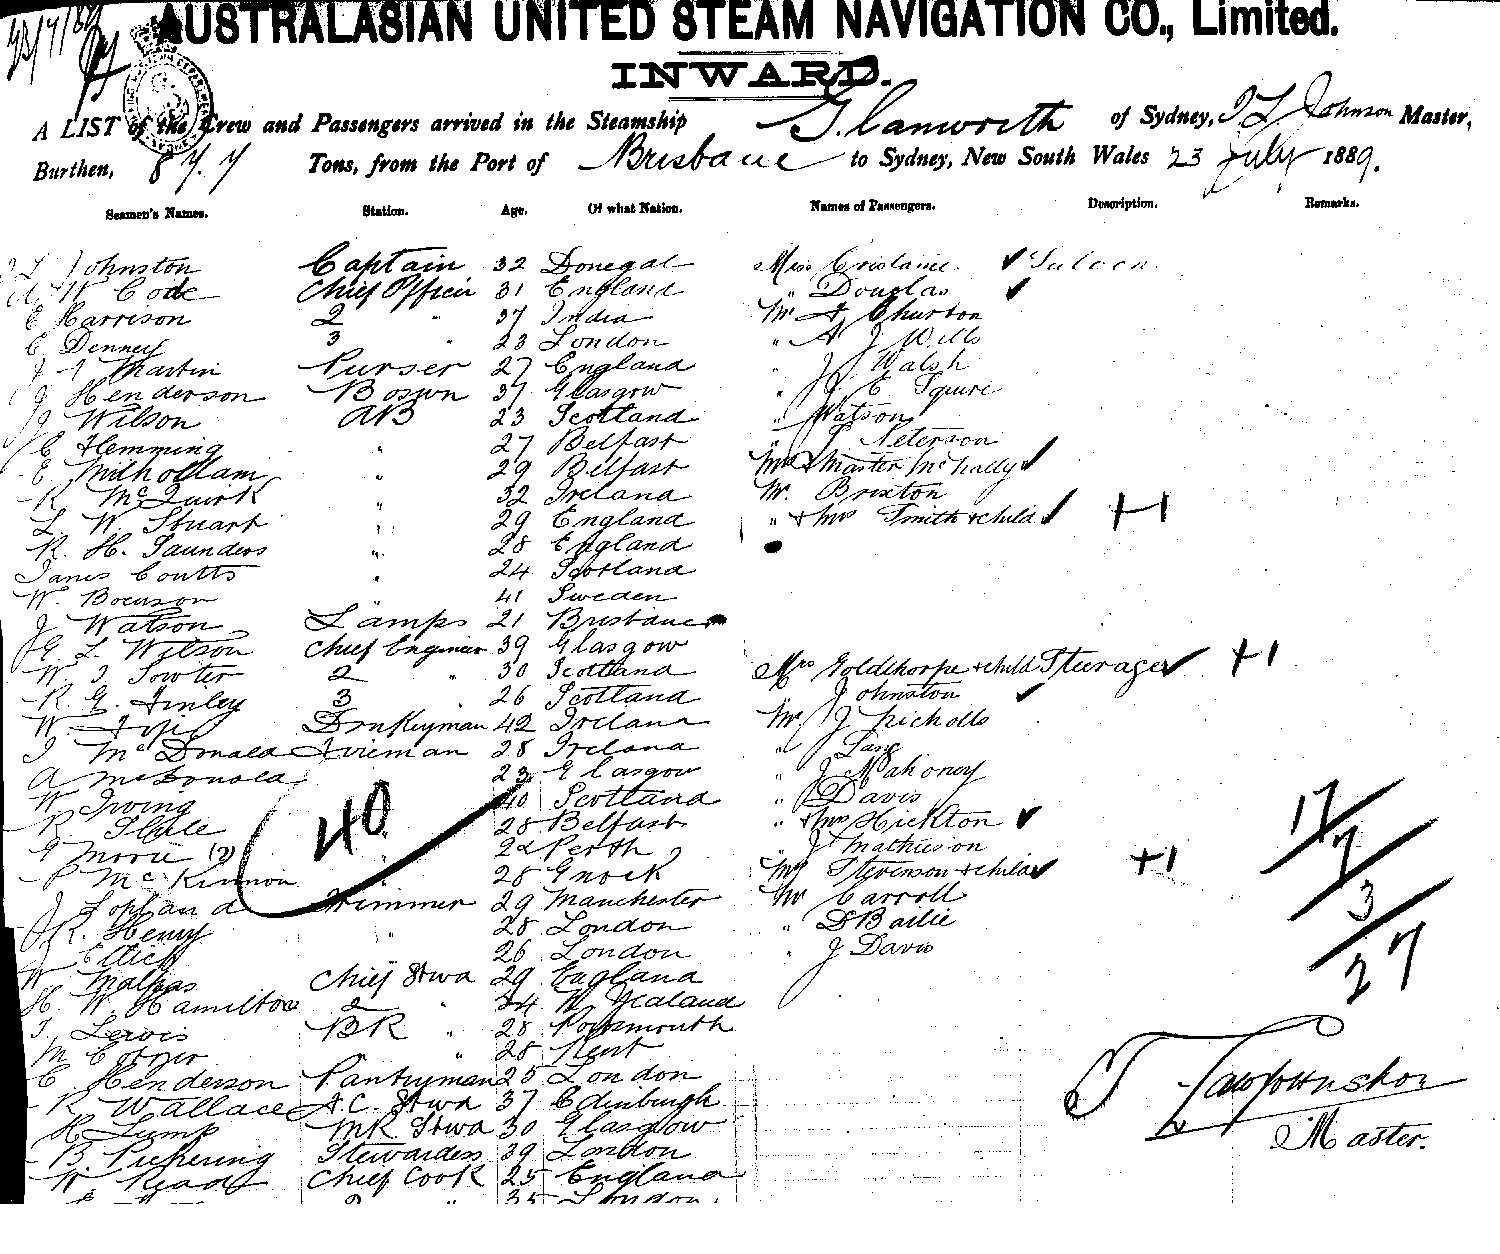 AUSTRALASIAN UNITED STEAM NAVIGATION CO., Limited.
INWARD.
A LIST of the Crew and Passengers arrived in the Steamship Glanworth of Sydney, T L Johnson Master,
Burthen, 877 Tons, from the Port of Brisbane to Sydney, New South Wales 23 July 1889.
Seamen's Names. Station. Age. Of what Nation. Names of Passengers. Description. Remarks.
Johnston Captain 32 Donegal Miss Saloon
W Code Chief Officer 31 England " Douglas
C Harrison 2 " 37 India Mr A Churton
C Denney 3 " 23 London " A J Wills
Martin Purser 27 England " J Walsh
J Henderson Bosun 37 Glasgow " J E Squire
J Wilson AB 23 Scotland " Watson
C Hemming " 27 Belfast " Peterson
E Milhollam " 29 Belfast Mrs & Master
R McQuirk " 32 Ireland Mr. Brixton
L W. Stuart " 29 England " & Mrs Smith & child +1
R. H. Saunders " 28 England
James Coutts " 24 Scotland
W. " 41 Sweden
J Watson Lamps 21 Brisbane
G L Wilson Chief Engineer 39 Glasgow
W J Sowter 2 " 30 Scotland Mrs Goldthorpe & child Steerage +1
R G. Finley 3 " 26 Scotland " J Johnston
W Donkeyman 42 Ireland Mr J Nicholls
J McDonald Fireman 28 Ireland " Lang
A McDonald 23 Glasgow " J Mahoney
W Irving 40 40 Scotland " Davis
R 28 Belfast " & Mrs Hickton
G (2) Perth J Mathieson
P McKinnon 28 Mrs Stevenson & child +1
J Trimmer 29 Manchester Mr Carroll
R. Henry " 28 London " D Bailie
J " 26 London " J Davis
W Malpas Chief Stwd 29 England
H. W. Hamilton 2 " 24 N Zealand
J. Lewis BR " 28 Portsmouth
M " 28 Kent
C Henderson Pantryman 25 London
R Wallace A.C. Stwd 37 Edinburgh
H Lump MR Stwd 30 Glasgow
B. Pickering Stewardess 39 London
W Chief Cook 25 England
2 " 35 London
17
7
3
27
Master.